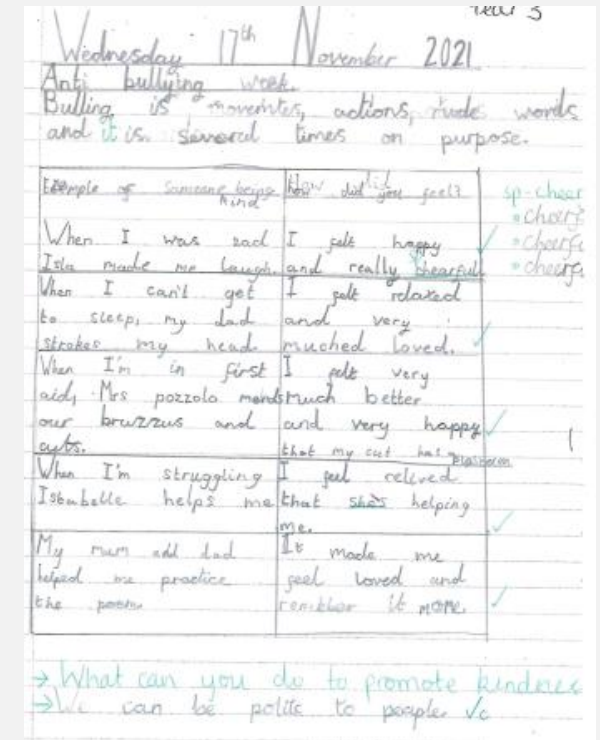 Year 3
Wednesday 17th November 2021
Anti bullying week.
Bulling is movemtes, actions, rude words
and it is. several times on purpose.
Example of Someone being kind
How did you feel?
sp-cheer
• cheerf
• cheerfu
• cheerfu
When I was sad
Isla made me laugh.
I felt happy
and really chearfull
When I can't get
to sleep, my dad
strokes my head
I felt relaxed
and very
muched loved.
When I'm in first
aid, Mrs pozzolo mends
our bruzzus and
cuts.
I felt very
much better
and very happy
that my cut has
When I'm struggling
Isabelle helps me
I feel relived
that shes helping
me.
My mum add dad
helped me practice
the poem.
It made me
feel loved and
it more.
→ What can you do to promote kindness
→ We can be polite to people.